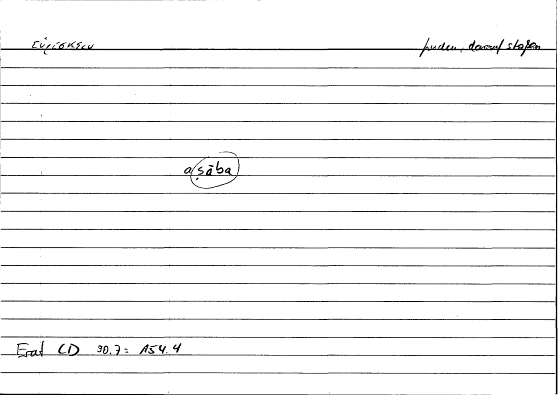 εὑρίσκειν finden, darauf stoßen
aṣāba
Erat CD 30.7 = A54.4